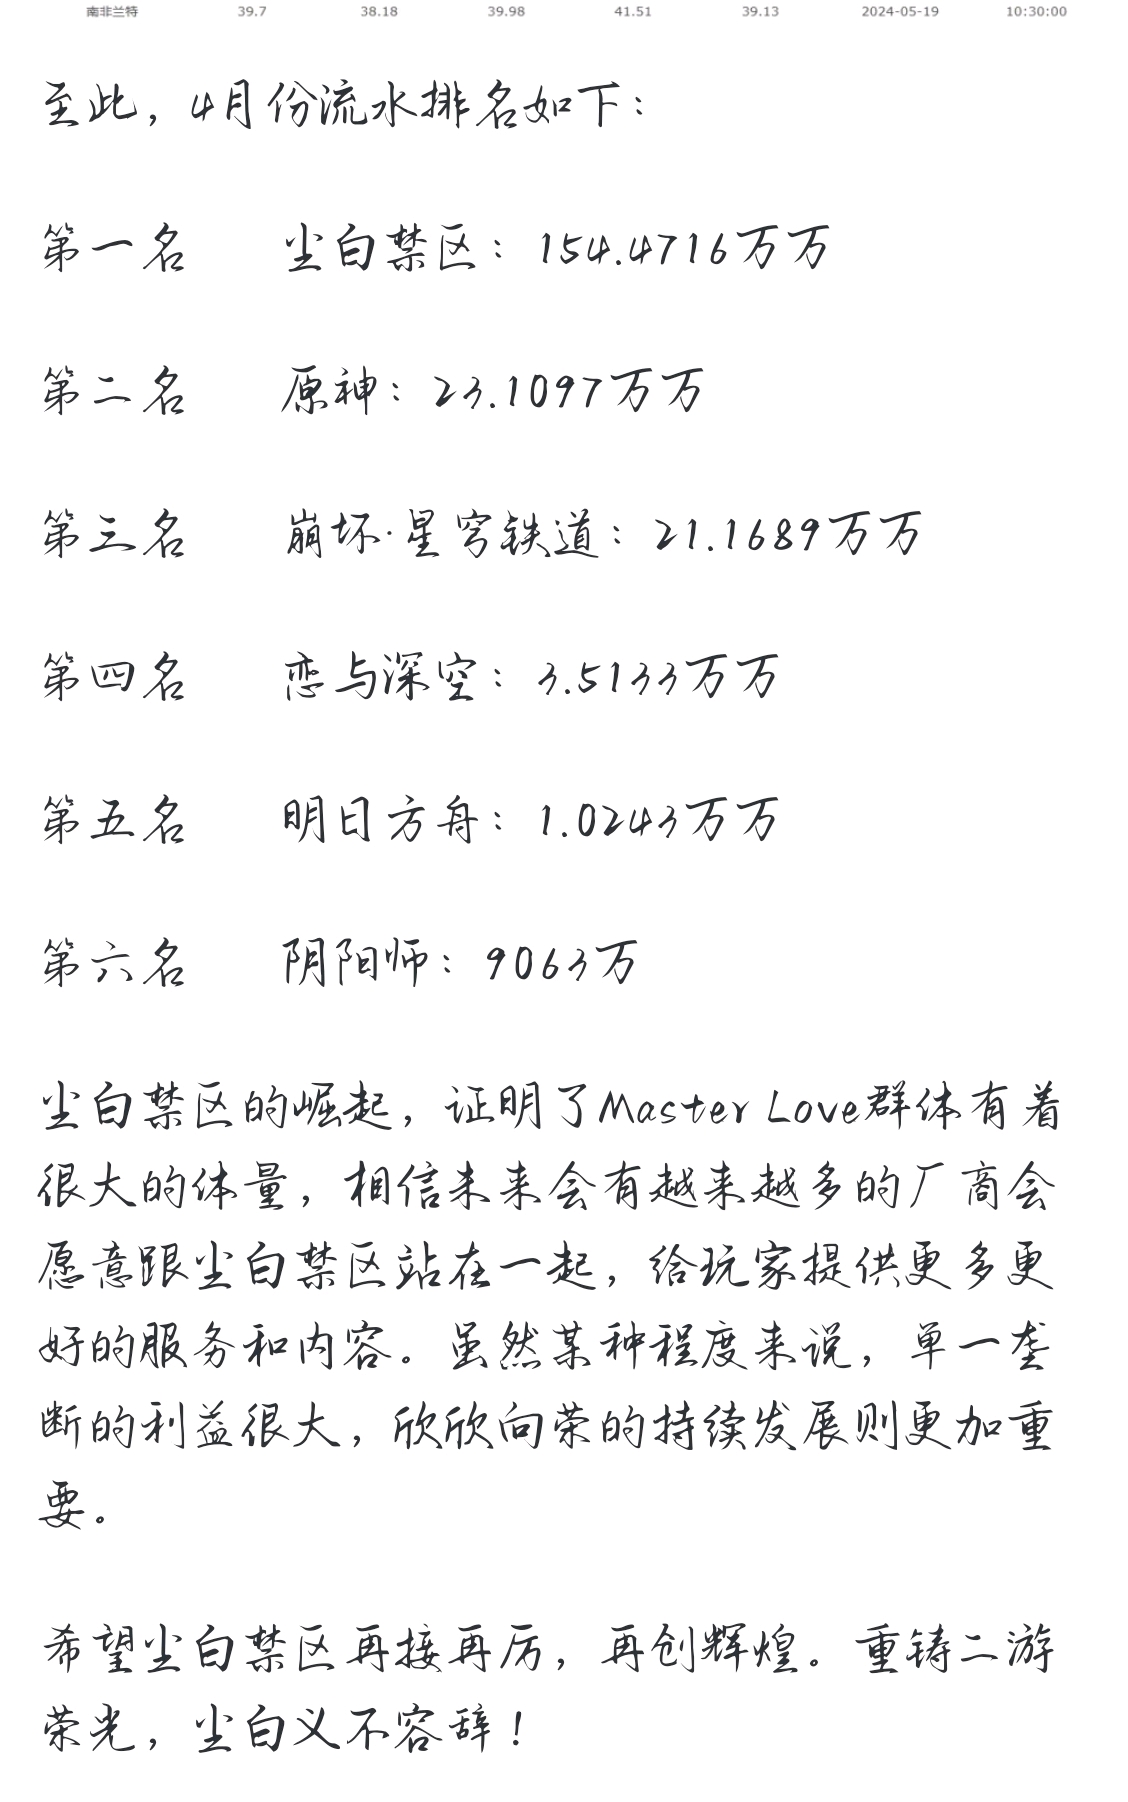 南非兰特 39.7 38.18 39.98 41.51 39.13 2024-05-19 10:30:00
至此，4月份流水排名如下：
第一名 尘白禁区：154.4716万万
第二名 原神：23.1097万万
第三名 崩坏·星穹铁道：21.1689万万
第四名 恋与深空：3.5133万万
第五名 明日方舟：1.0243万万
第六名 阴阳师：9063万
尘白禁区的崛起，证明了Master Love群体有着
很大的体量，相信未来会有越来越多的厂商会
愿意跟尘白禁区站在一起，给玩家提供更多更
好的服务和内容。虽然某种程度来说，单一垄
断的利益很大，欣欣向荣的持续发展则更加重
要。
希望尘白禁区再接再厉，再创辉煌。重铸二游
荣光，尘白义不容辞！